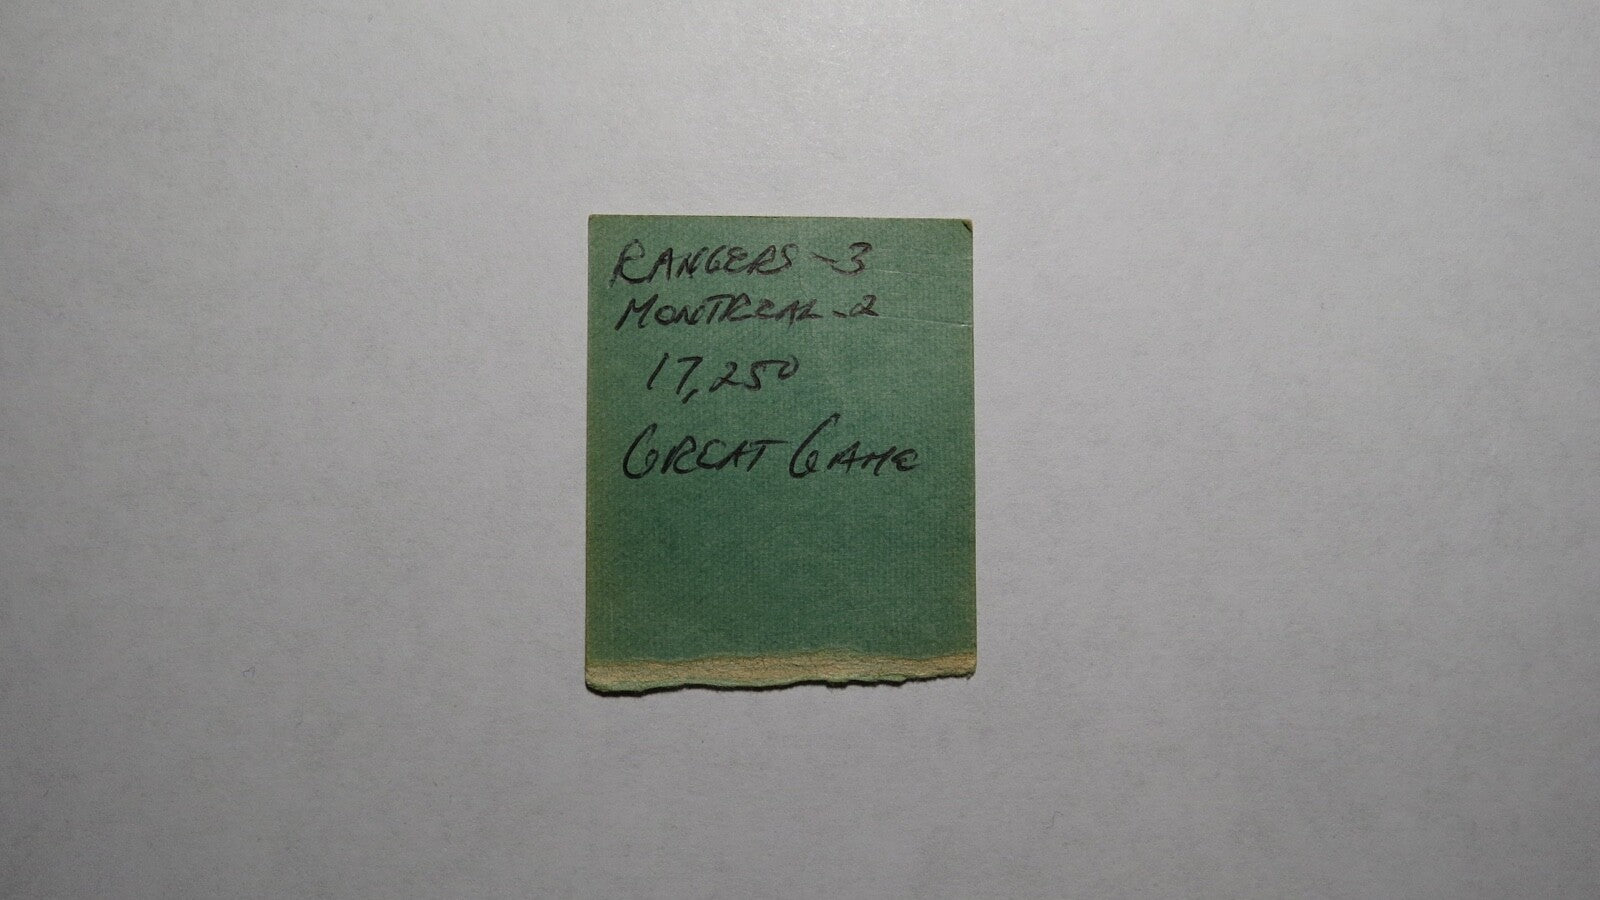 RANGERS - 3
MONTREAL - 2
17,250
GREAT GAME